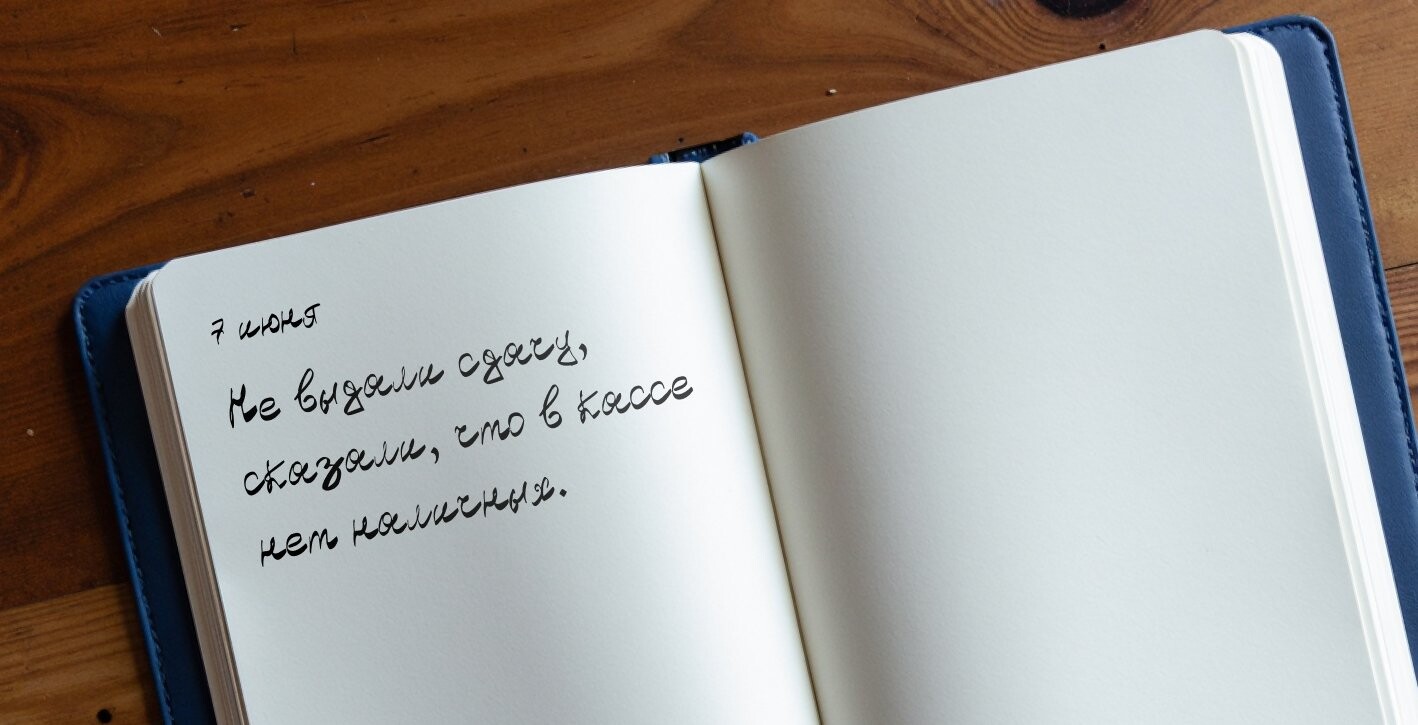 7 июня
Не выдали сдачу,
сказали, что в кассе
нет наличных.